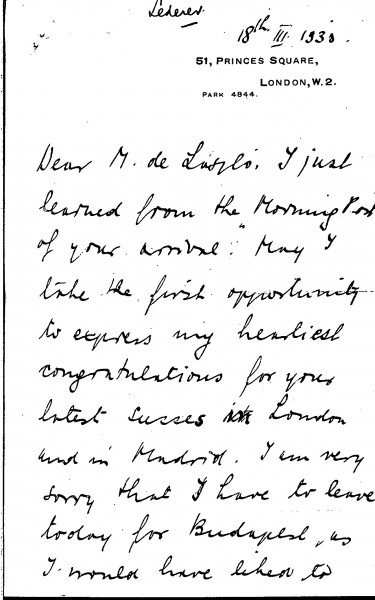 Lederer.
18th III 1930.
51, PRINCES SQUARE,
LONDON, W.2.
PARK 4844.
Dear M. de László, I just
learned from the "Morning Post"
of your arrival. May I
take the first opportunity
to express my heartiest
congratulations for your
latest succes in London
and in Madrid. I am very
sorry that I have to leave
today for Budapest, as
I would have liked to